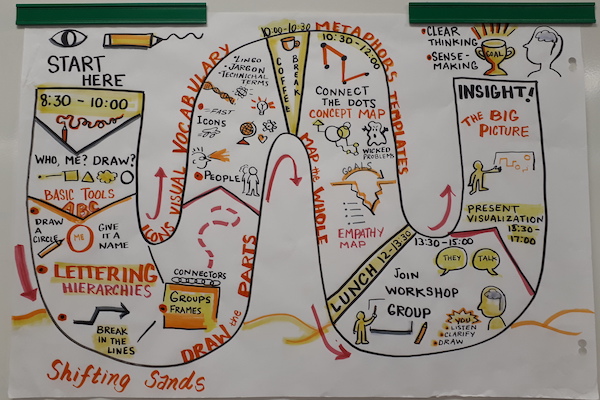 START
HERE
8:30 - 10:00
WHO, ME? DRAW?
BASIC TOOLS
ABC
DRAW
A
CIRCLE
ME
GIVE
IT A
NAME
LETTERING
HIERARCHIES
BREAK
IN THE
LINES
Shifting Sands
ICONS VISUAL VOCABULARY
LINGO
JARGON
TECHNICHAL
TERMS
FAST
ICONS
PEOPLE
CONNECTORS
GROUPS
FRAMES
DRAW the PARTS
10:00 - 10:30
COFFEE
BREAK
MAP the WHOLE
METAPHORS TEMPLATES
10:30 - 12:00
CONNECT
THE DOTS
CONCEPT MAP
WICKED
PROBLEMS
GOALS
EMPATHY
MAP
LUNCH 12-13:30
13:30 - 15:00
THEY
TALK
JOIN
WORKSHOP
GROUP
YOU
LISTEN
CLARIFY
DRAW
PRESENT
VISUALIZATION
15:30-
17:00
THE BIG
PICTURE
INSIGHT!
CLEAR
THINKING
SENSE-
MAKING
GOAL